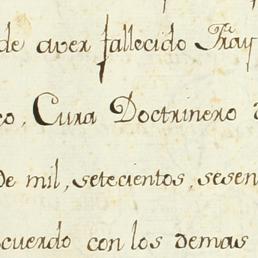 de aver fallecido Fray
co, Cura Doctrinero
de mil, setecientos, sesen
cuerdo con los demas